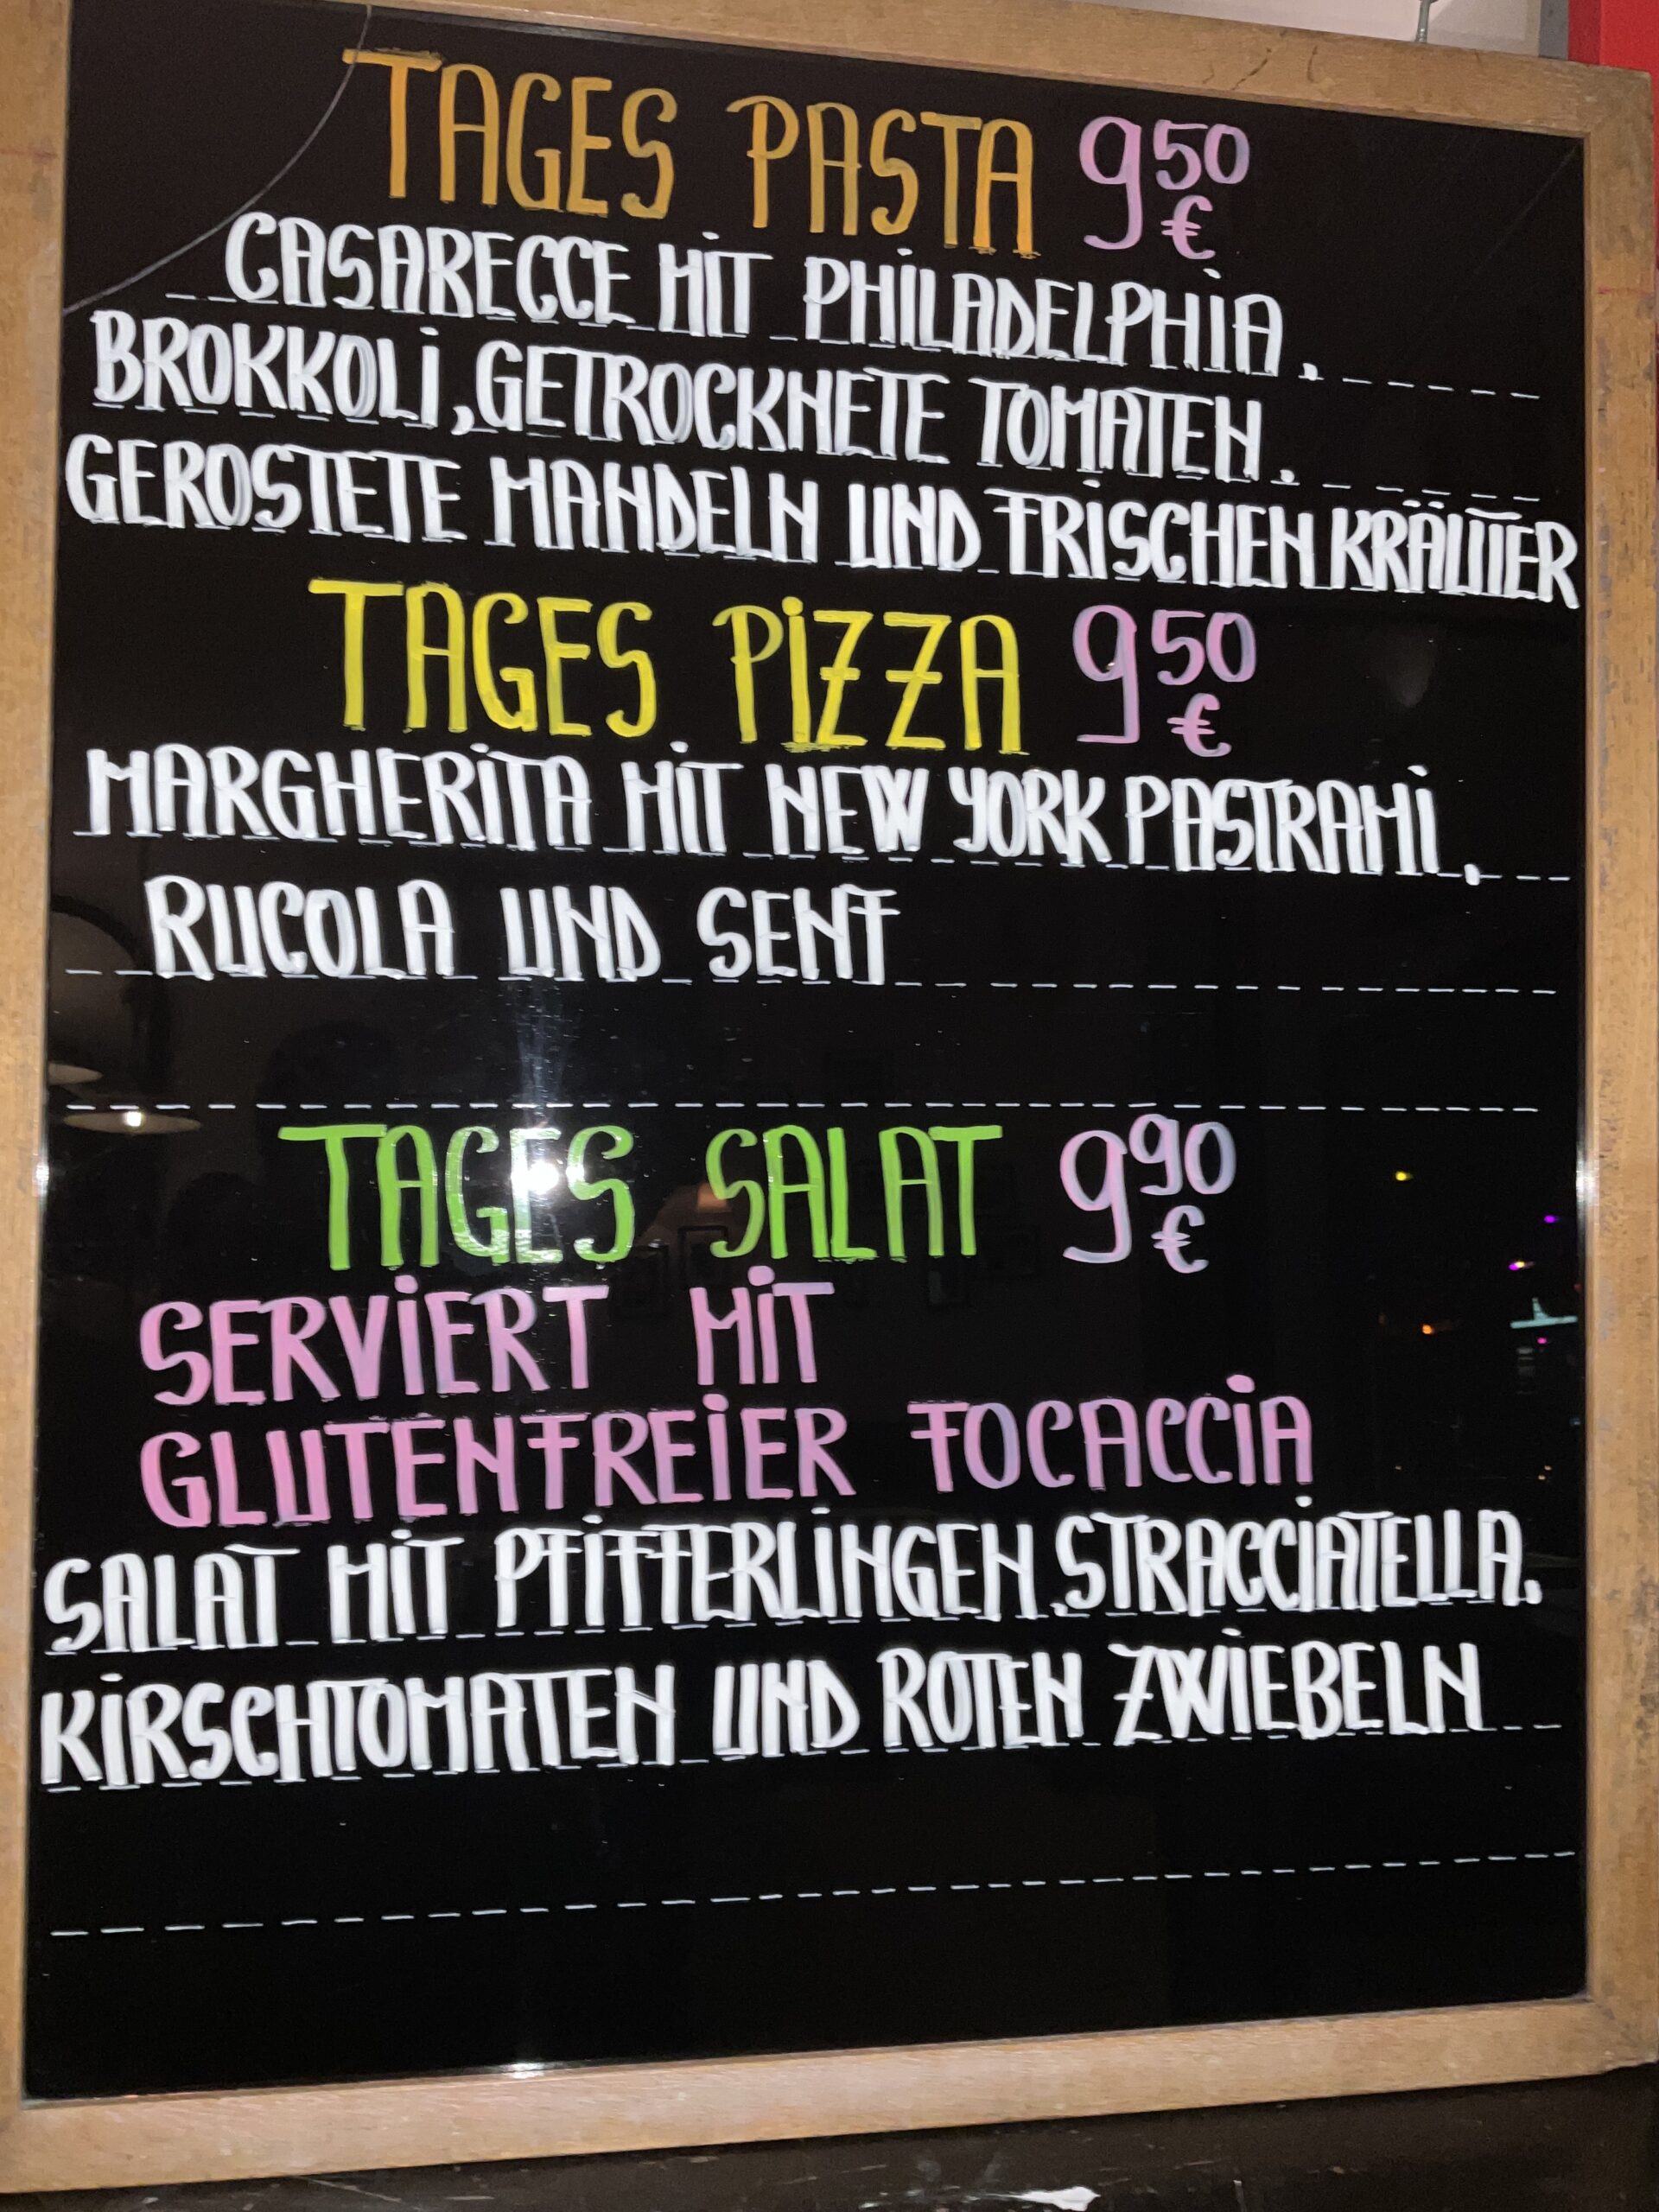 TAGES PASTA 9⁵⁰ €
CASARECCE MIT PHILADELPHIA,
BROKKOLI, GETROCKNETE TOMATEN,
GEROSTETE MANDELN UND FRISCHEN KRÄUTER
TAGES PIZZA 9⁵⁰ €
MARGHERITA MIT NEW YORK PASTRAMI,
RUCOLA UND SENF
TAGES SALAT 9⁹⁰ €
SERVIERT MIT
GLUTENFREIER FOCACCIA
SALAT MIT PFIFFERLINGEN, STRACCIATELLA,
KIRSCHTOMATEN UND ROTEN ZWIEBELN